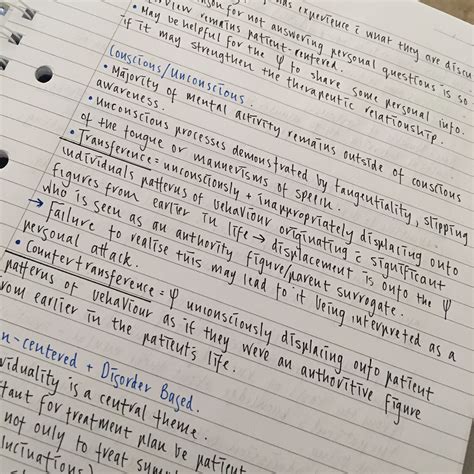 has experience c̄ what they are
son for not answering personal questions is so
review remains patient-centered.
• May be helpful for the ψ to share some personal info.
if it may strengthen the therapeutic relationship.
Conscious/Unconscious.
• Majority of mental activity remains outside of conscious
awareness.
• Unconscious processes demonstrated by tangentiality, slipping
of the tongue or mannerisms of speech.
• Transference = unconsciously + inappropriately displacing onto
individuals patterns of behaviour originating c̄ significant
figures from earlier in life → displacement is onto the ψ
who is seen as an authority figure/parent surrogate.
→ Failure to realise this may lead to it being interpreted as a
personal attack.
• Countertransference = ψ unconsciously displacing onto patient
patterns of behaviour as if they were an authoritive figure
from earlier in the patient's life.
n-centered + Disorder Based.
viduality is a central theme.
tant for treatment plan be patient
not only to treat
lucinations)